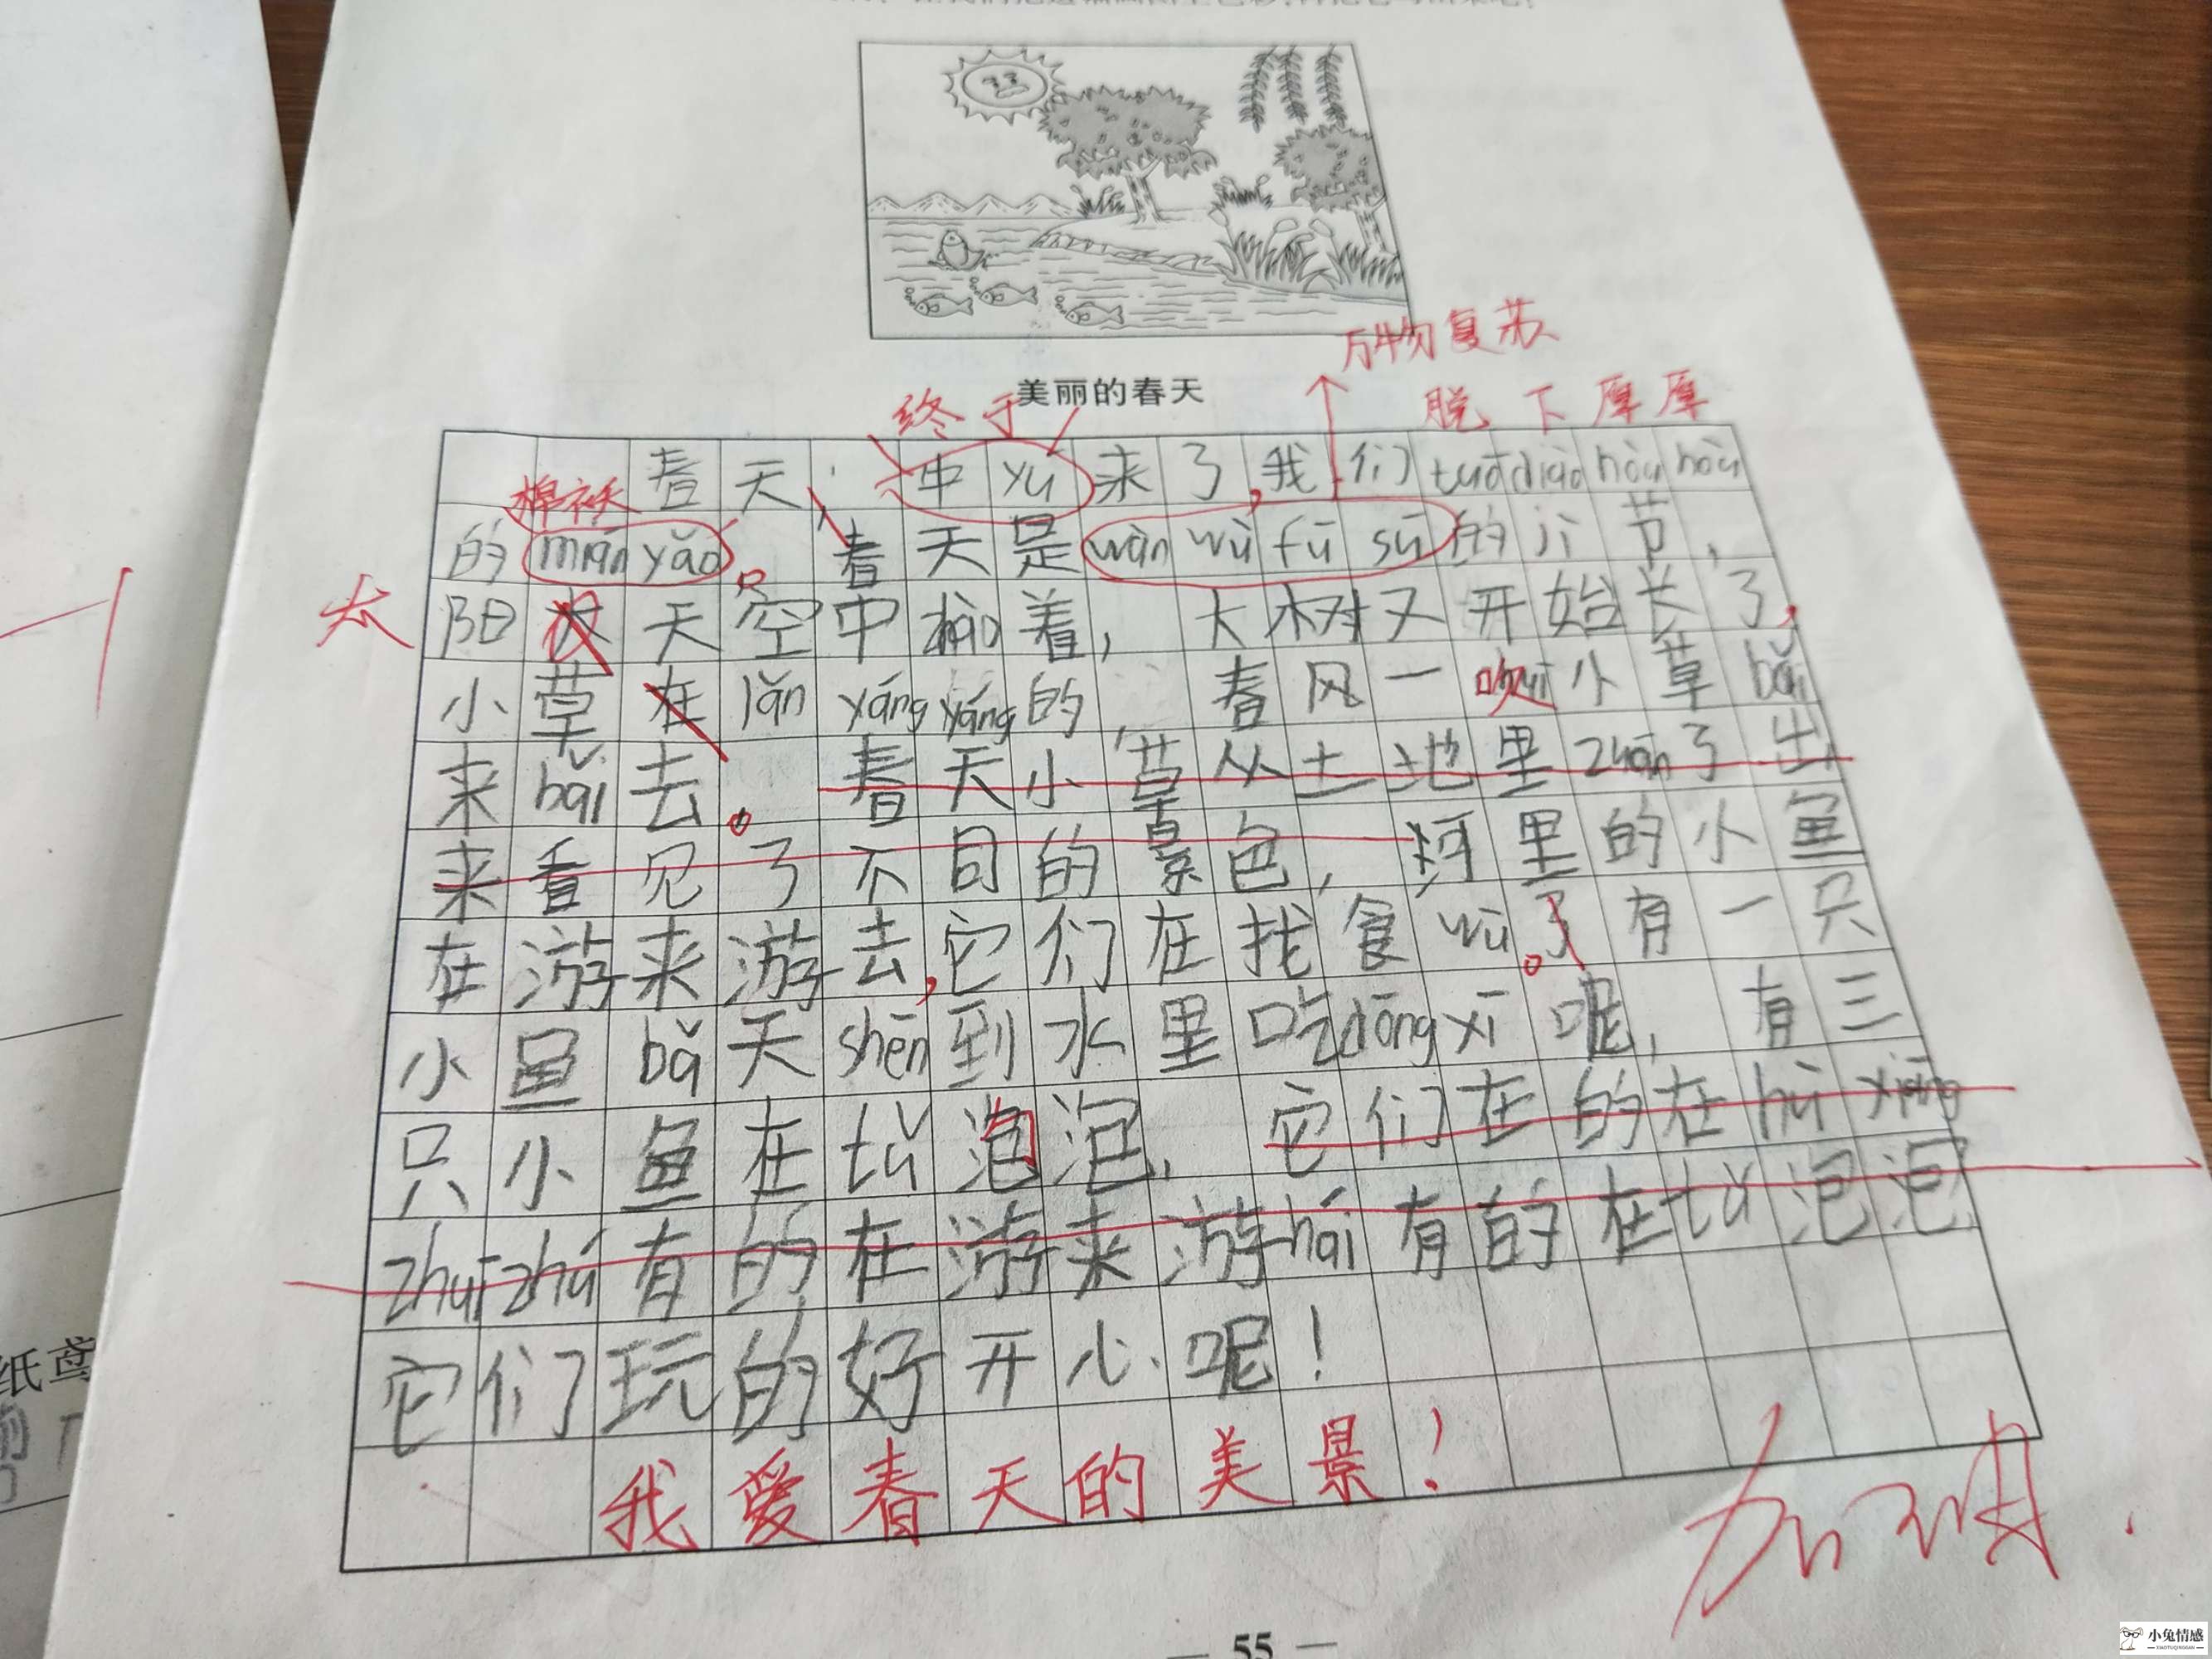 万物复苏
美丽的春天
终于
脱下厚厚
棉袄
春天,中yú来了,我们tuō diào hòu hòu
的mián yǎo。春天是wàn wù fù sū的jì节,
太
阳太天空中zhào着,大树又开始长了,
小草在lǎn yáng yáng的,春风一吹小草bǎi
来bǎi去。春天小草从土地里zhān了出
来看见了不同的景色,河里的小鱼
在游来游去,它们在找食wù。了有一只
小鱼bǎ天shēn到水里吃dōng xī呢,有三
只小鱼在tǔ泡泡,它们在的在hù xiāng
zhuī zhú有的在游来游hái有的在tǔ泡泡
它们玩的好开心呢!
我爱春天的美景!
加油.
— 55 —
纸鸢
小兔情感